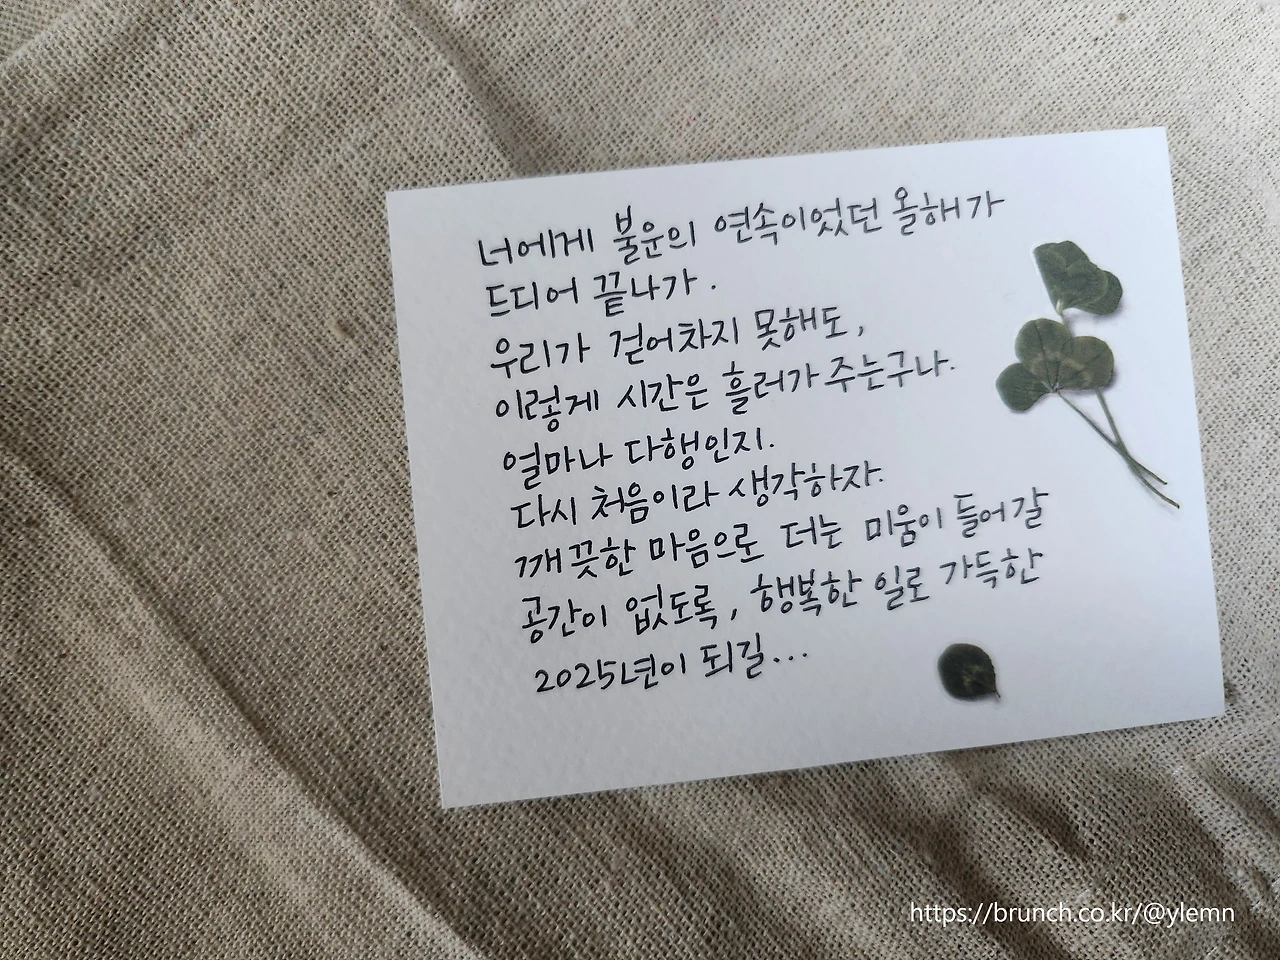 너에게 불운의 연속이었던 올해가
드디어 끝나가.
우리가 걷어차지 못해도,
이렇게 시간은 흘러가 주는구나.
얼마나 다행인지.
다시 처음이라 생각하자.
깨끗한 마음으로 더는 미움이 들어갈
공간이 없도록, 행복한 일로 가득한
2025년이 되길...
https://brunch.co.kr/@ylemn